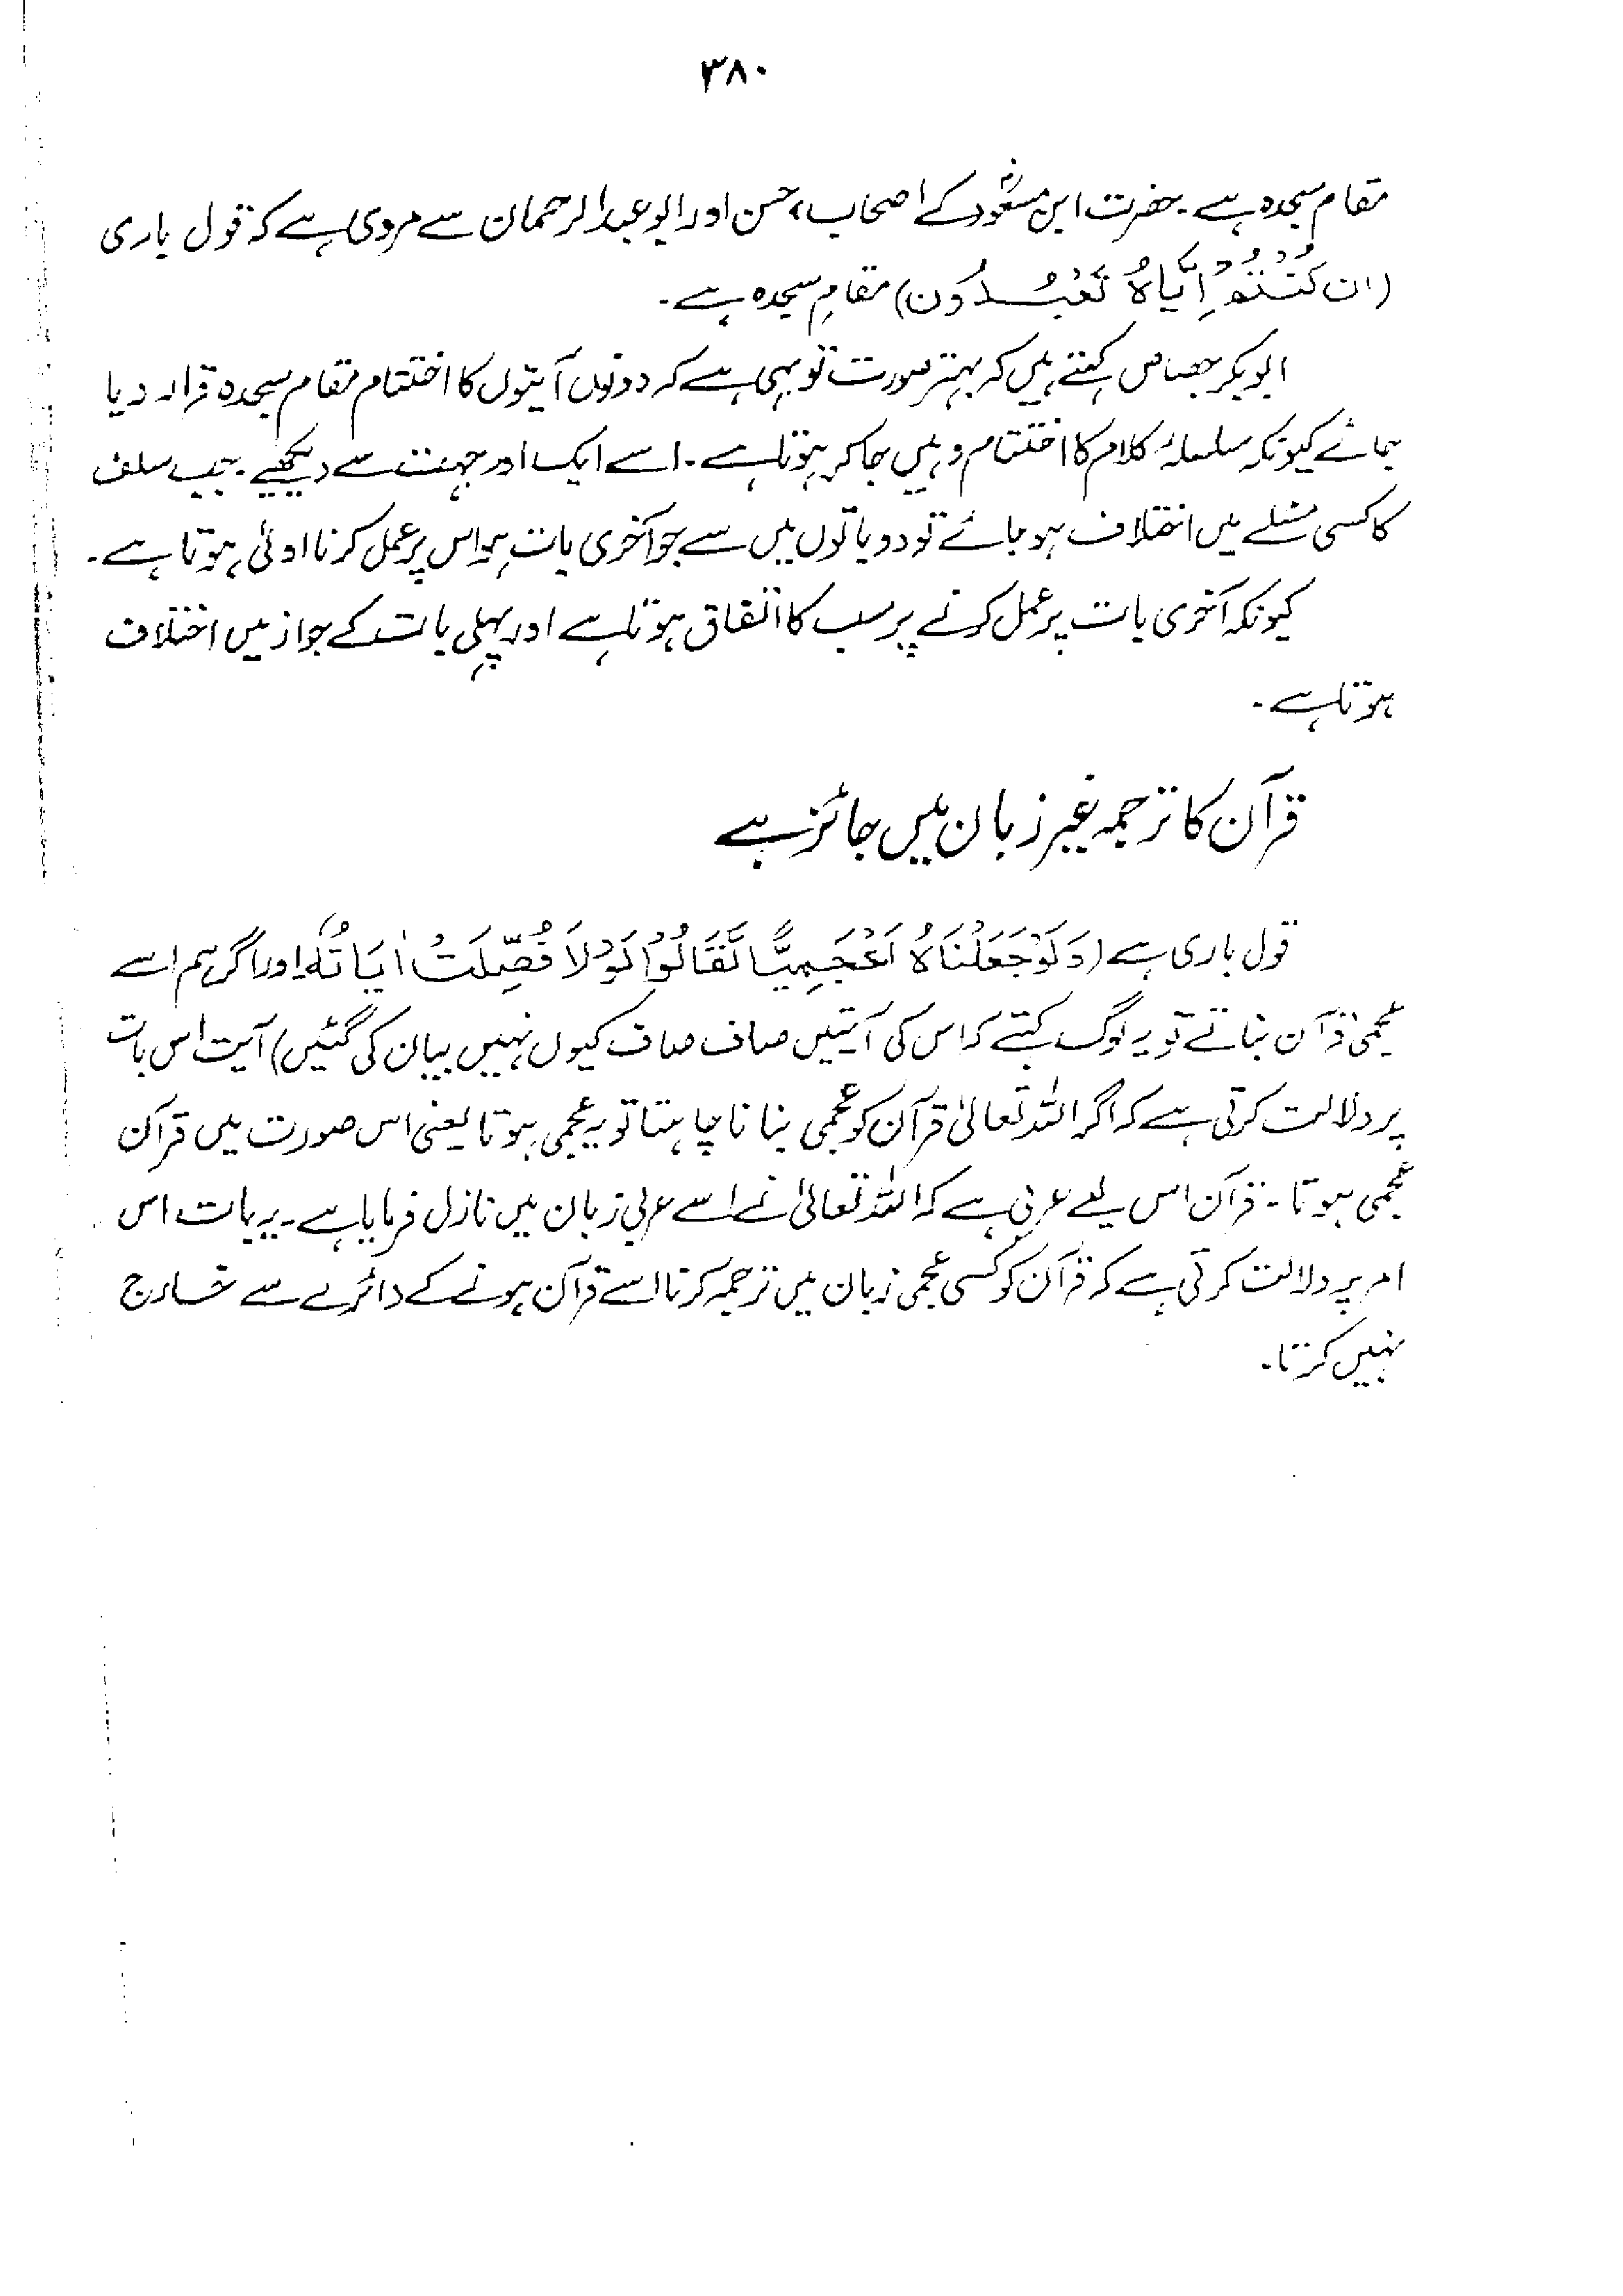 ۳۸۰
مقام سجدہ ہے۔ حضرت ابن مسعودؓ کے اصحاب، حسن اور ابو عبدالرحمان سے مروی ہے کہ قول باری
(ان كُنْتُمْ اِيَّاهُ تَعْبُدُون) مقامِ سجدہ ہے۔
ابوبکر جصاص کہتے ہیں کہ بہتر صورت تو یہی ہے کہ دونوں آیتوں کا اختتام مقام سجدہ قرار دیا
جائے کیونکہ سلسلۂ کلام کا اختتام وہیں جا کر ہوتا ہے۔ اسے ایک اور جہت سے دیکھیے۔ جب سلف
کا کسی مسئلے میں اختلاف ہو جائے تو دو باتوں میں سے جو آخری بات ہو اس پر عمل کرنا اولیٰ ہوتا ہے۔
کیونکہ آخری بات پر عمل کرنے پر سب کا اتفاق ہوتا ہے اور پہلی بات کے جواز میں اختلاف
ہوتا ہے۔
قرآن کا ترجمہ غیر زبان میں جائز ہے
قول باری ہے (وَلَوْ جَعَلْنَاهُ اَعْجَمِيًّا لَّقَالُوْا لَوْلَا فُصِّلَتْ اٰيَاتُهُ اور اگر ہم اسے
عجمی قرآن بناتے تو یہ لوگ کہتے کہ اس کی آیتیں صاف صاف کیوں نہیں بیان کی گئیں) آیت اس بات
پر دلالت کرتی ہے کہ اگر اللہ تعالیٰ قرآن کو عجمی بنانا چاہتا تو یہ عجمی ہوتا یعنی اس صورت میں قرآن
عجمی ہوتا۔ قرآن اس لیے عربی ہے کہ اللہ تعالیٰ نے اسے عربی زبان میں نازل فرمایا ہے۔ یہ بات اس
امر پر دلالت کرتی ہے کہ قرآن کو کسی عجمی زبان میں ترجمہ کرنا اسے قرآن ہونے کے دائرے سے خارج
نہیں کرتا۔